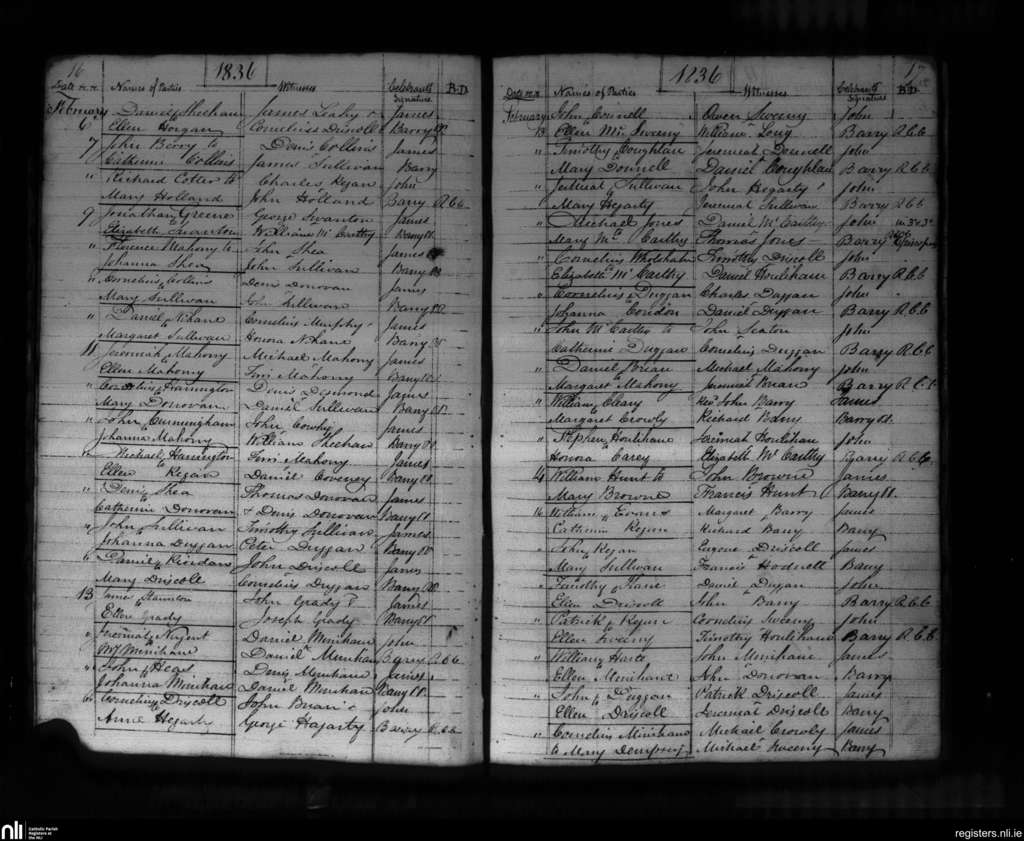 16
1836
Date &c &c Names of Parties Witnesses Celebrant's Signature B.D.
February Daniel Sheehan James Leahy & James
6 Ellen Horgan Cornelius Driscoll Barry
7 John Berry to Denis Collins James
Catherine Collins James Sullivan Barry
" Richard Cotter to Charles Regan John
Mary Holland John Holland Barry R.C.C
9 Jonathan Greene George Swanton James
Elizabeth Swanton William Mc Carthy Barry
" Florence Mahony to John Shea James
Johanna Shea John Sullivan Barry
" Cornelius Collins Denis Donovan James
Mary Sullivan John Sullivan Barry
" Daniel Nihane Cornelius Murphy James
Margaret Sullivan Honora Nihane Barry
11 Jeremiah Mahony Michael Mahony James
Ellen Mahony Mahony Barry
" Cornelius Harrington Denis Desmond James
Mary Donovan Daniel Sullivan Barry
" John Cunningham John James
Johanna Mahony William Sheehan Barry
" Michael Harrington Mahony James
Ellen Regan Daniel Coveney Barry
" Denis Shea Thomas Donovan James
Catherine Donovan & Denis Donovan Barry
" John Sullivan Timothy Sullivan James
Johanna Duggan Peter Duggan Barry
" Daniel Riordan John Driscoll James
Mary Driscoll Cornelius Duggan Barry
13 James Staunton John Grady & James
Ellen Grady Joseph Grady Barry
" Jeremiah Nugent Daniel Minihan John
Minihane Daniel Minihan Barry R.C.C
" John Heas Denis Minihane James
Johanna Minihane Daniel Minihan Barry
" Cornelius Driscoll John Brian & John
Anne Hegarty George Hagarty Barry R.C.C
17
1836
Date &c &c Names of Parties Witnesses Celebrant's Signature B.D.
February John Connell Owen Sweeny John
13 Ellen Mc Sweeny William Long Barry R.C.C
" Timothy Coughlan Jeremiah Donnell John
Mary Donnell Daniel Coughlan Barry R.C.C
" Jeremiah Sullivan John Hegarty John
Mary Hegarty Jeremiah Sullivan Barry R.C.C
" Michael Jones Daniel Mc Carthy John in 3o 3o
Mary Mc Carthy Thomas Jones Barry R.C.C
" Cornelius Timothy Driscoll John
Elizabeth Mc Carthy Daniel Houlihane Barry R.C.C
" Cornelius Duggan Charles Duggan John
Johanna Condon Daniel Duggan Barry R.C.C
" John Mc Carthy to John Seaton John
Catherine Duggan Cornelius Duggan Barry R.C.C
" Daniel Brian Michael Mahony John
Margaret Mahony Jeremiah Brian Barry R.C.C
" William Cleary Revd John Barry James
Margaret Crowly Richard Barry
" Stephen Houlihane Jeremiah Houlihan John
Honora Carey Elizabeth Mc Carthy Barry R.C.C
14 William Hunt to John Browne James
Mary Browne Francis Hunt Barry
16 William Evans Margaret Barry James
Catherine Regan Richard Barry Barry
" John Regan Eugene Driscoll James
Mary Sullivan Francis Hodnett Barry
" Timothy Kane Daniel Duggan John
Ellen Driscoll John Barry Barry R.C.C
" Patrick Regan Cornelius Sweeny John
Ellen Sweeny Timothy Houlihane Barry R.C.C
" William Harte John Minihane James
Ellen Minihane John Donovan Barry
" John Duggan Patrick Driscoll James
Ellen Driscoll Jeremiah Driscoll Barry
" Cornelius Minihane Michael Crowly James
to Mary Dempsey Michael Sweeny Barry
nli Catholic Parish
Registers at
the NLI
registers.nli.ie